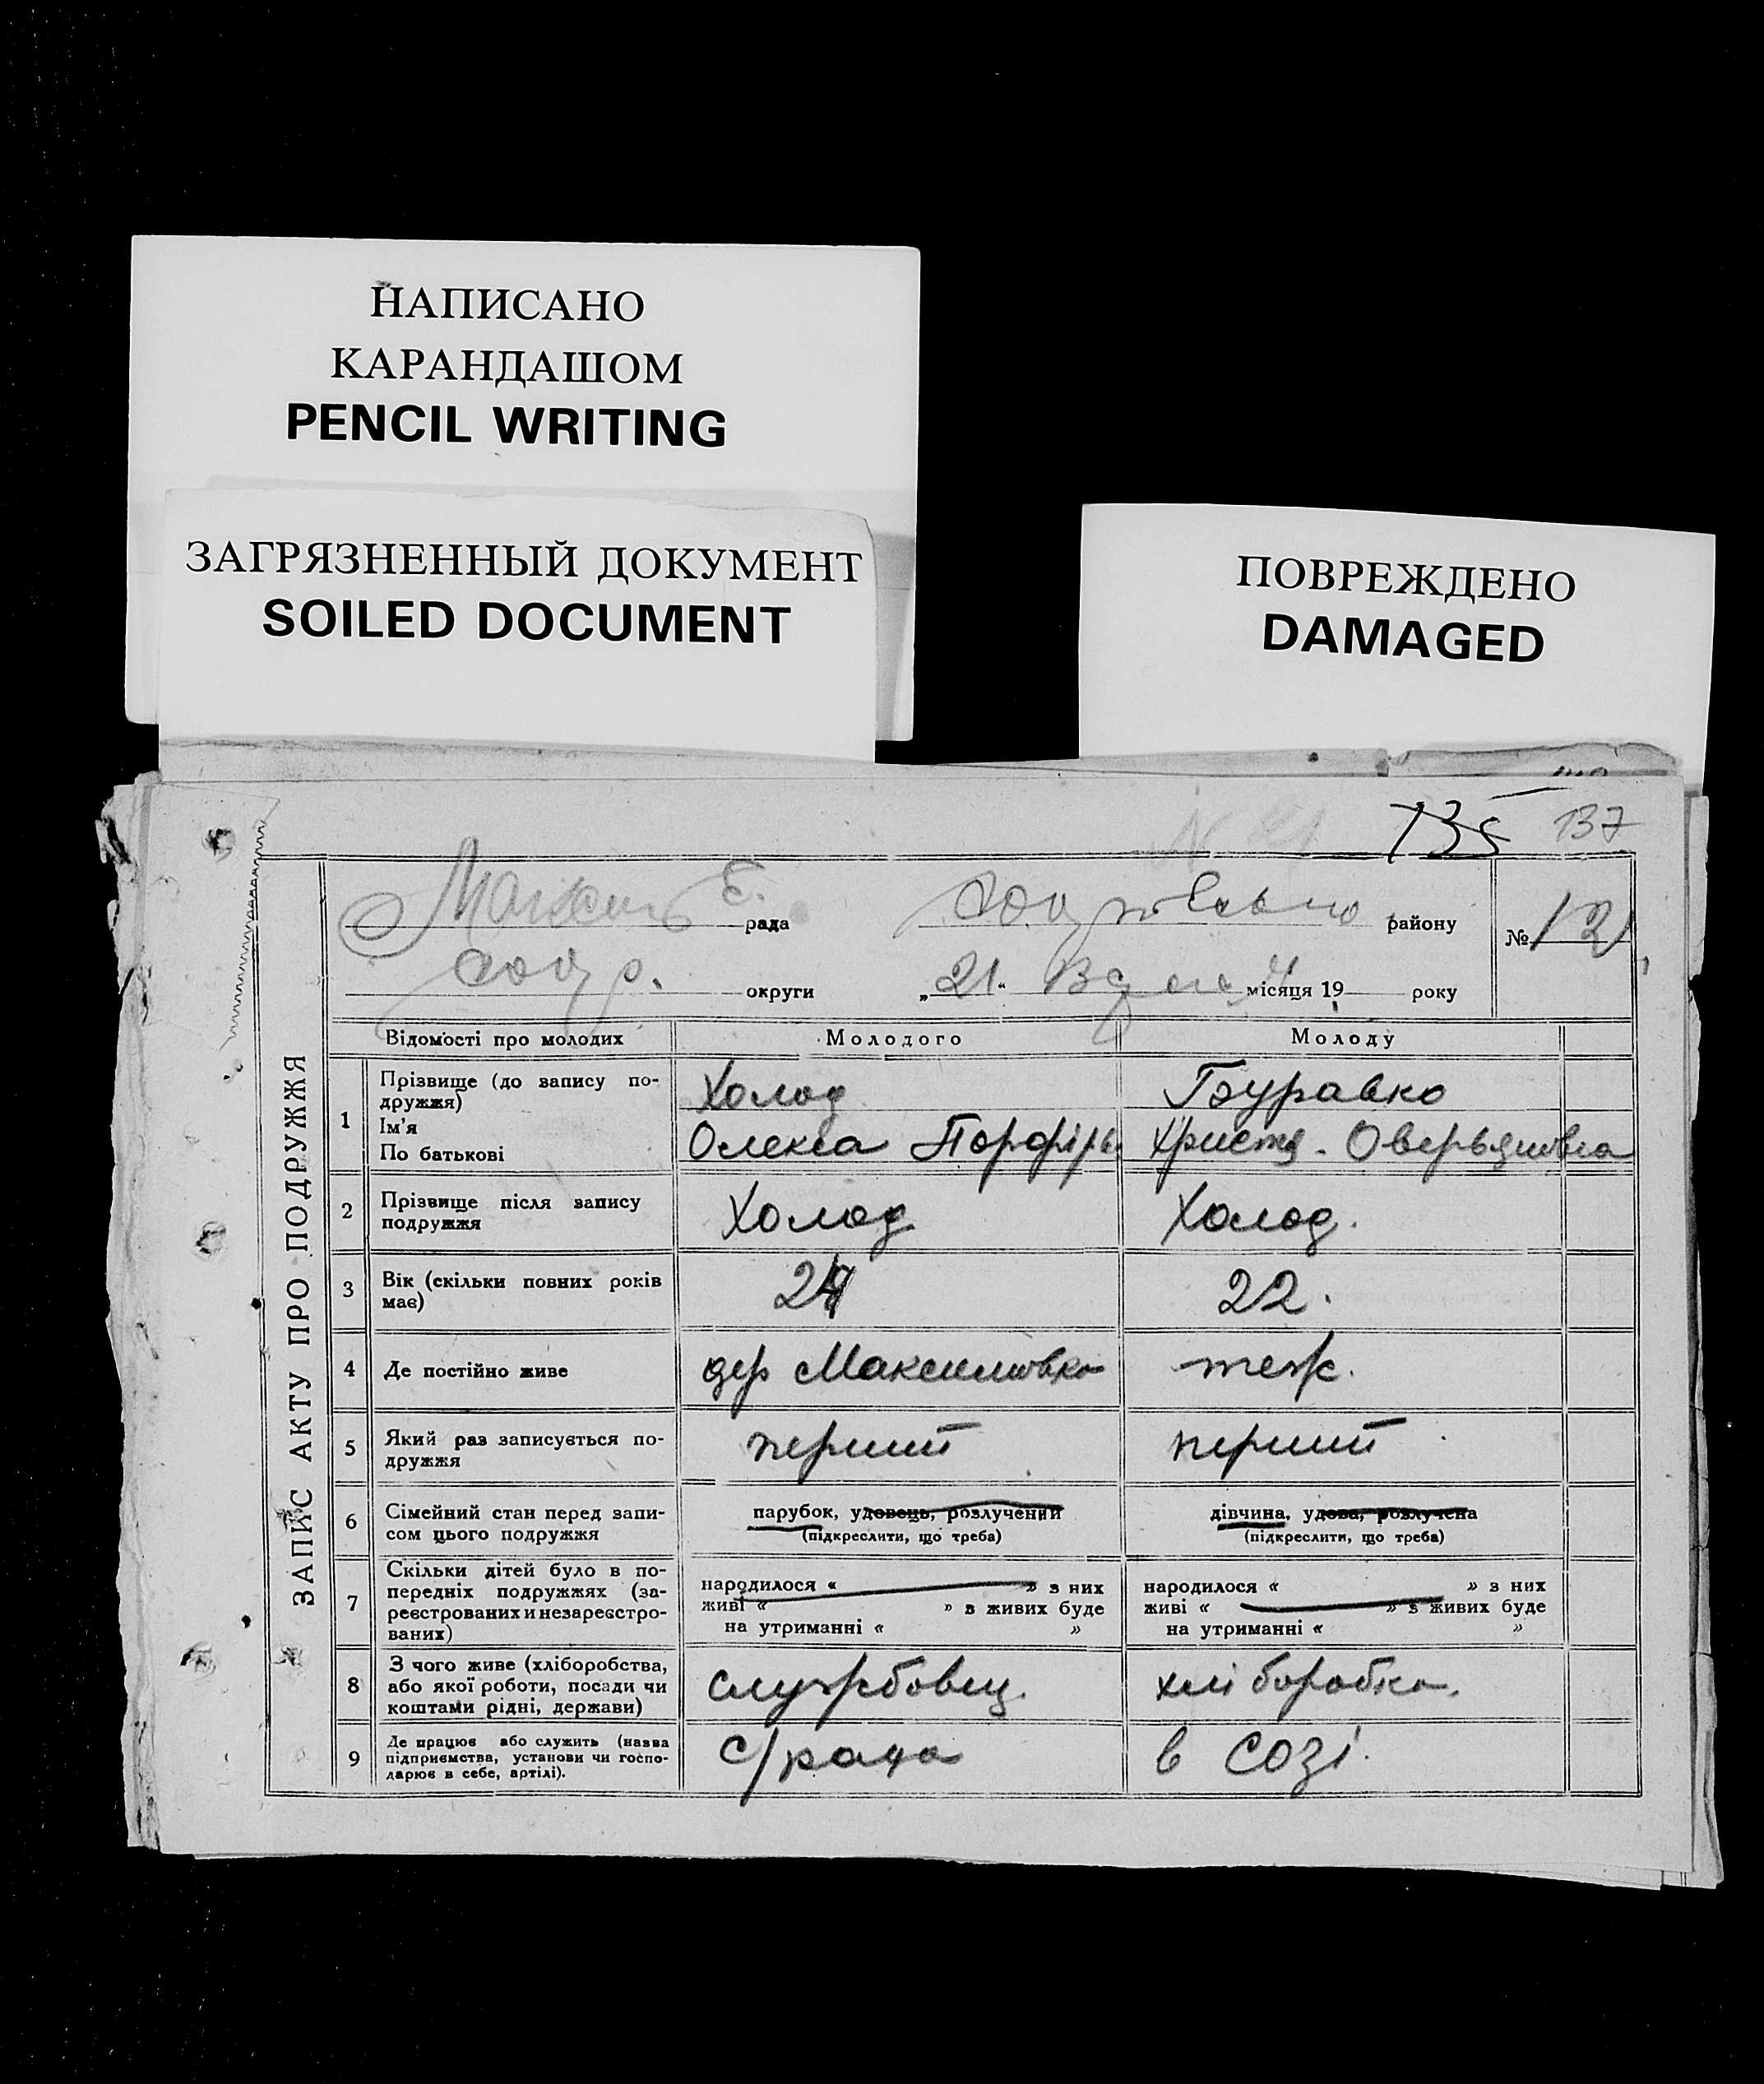 НАПИСАНО
КАРАНДАШОМ
PENCIL WRITING
ЗАГРЯЗНЕННЫЙ ДОКУМЕНТ
SOILED DOCUMENT
ПОВРЕЖДЕНО
DAMAGED
135 137
рада району № 12
округи „21“ місяця 19 року
ЗАПИС АКТУ ПРО ПОДРУЖЖЯ
Відомості про молодих Молодого Молоду
1 Прізвище (до запису по-
дружжя) Холод
Ім'я
По батькові Олекса Порфірь Христя
2 Прізвище після запису
подружжя Холод Холод.
3 Вік (скільки повних років
має) 22.
4 Де постійно живе дер Максимовка теж.
5 Який раз записується по-
дружжя перший перший
6 Сімейний стан перед запи-
сом цього подружжя парубок, удовець, розлучений дівчина, удова, розлучена
(підкреслити, що треба) (підкреслити, що треба)
7 Скільки дітей було в по-
передніх подружжях (за-
реєстрованих и незареєстро-
ваних) народилося « » з них народилося « » з них
живі « » в живих буде живі « » з живих буде
на утриманні « » на утриманні « »
8 З чого живе (хліборобства,
або якої роботи, посади чи
коштами рідні, держави) службовец. хліборобка.
9 Де працює або служить (назва
підприємства, установи чи госпо-
дарює в себе, артілі). с/рада в созі.